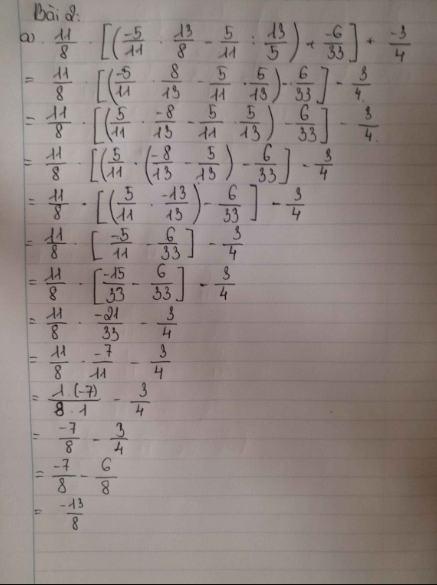 Bài 2:
a) 11/8 · [(-5/11 : 13/8 - 5/11 : 13/5) + -6/33] + -3/4
= 11/8 · [(-5/11 · 8/13 - 5/11 · 5/13) - 6/33] - 3/4
= 11/8 · [(5/11 · -8/13 - 5/11 · 5/13) - 6/33] - 3/4
= 11/8 · [(5/11 · (-8/13 - 5/13) - 6/33] - 3/4
= 11/8 · [(5/11 · -13/13) - 6/33] - 3/4
= 11/8 · [-5/11 - 6/33] - 3/4
= 11/8 · [-15/33 - 6/33] - 3/4
= 11/8 · -21/33 - 3/4
= 11/8 · -7/11 - 3/4
= 1·(-7)/8·1 - 3/4
= -7/8 - 3/4
= -7/8 - 6/8
= -13/8